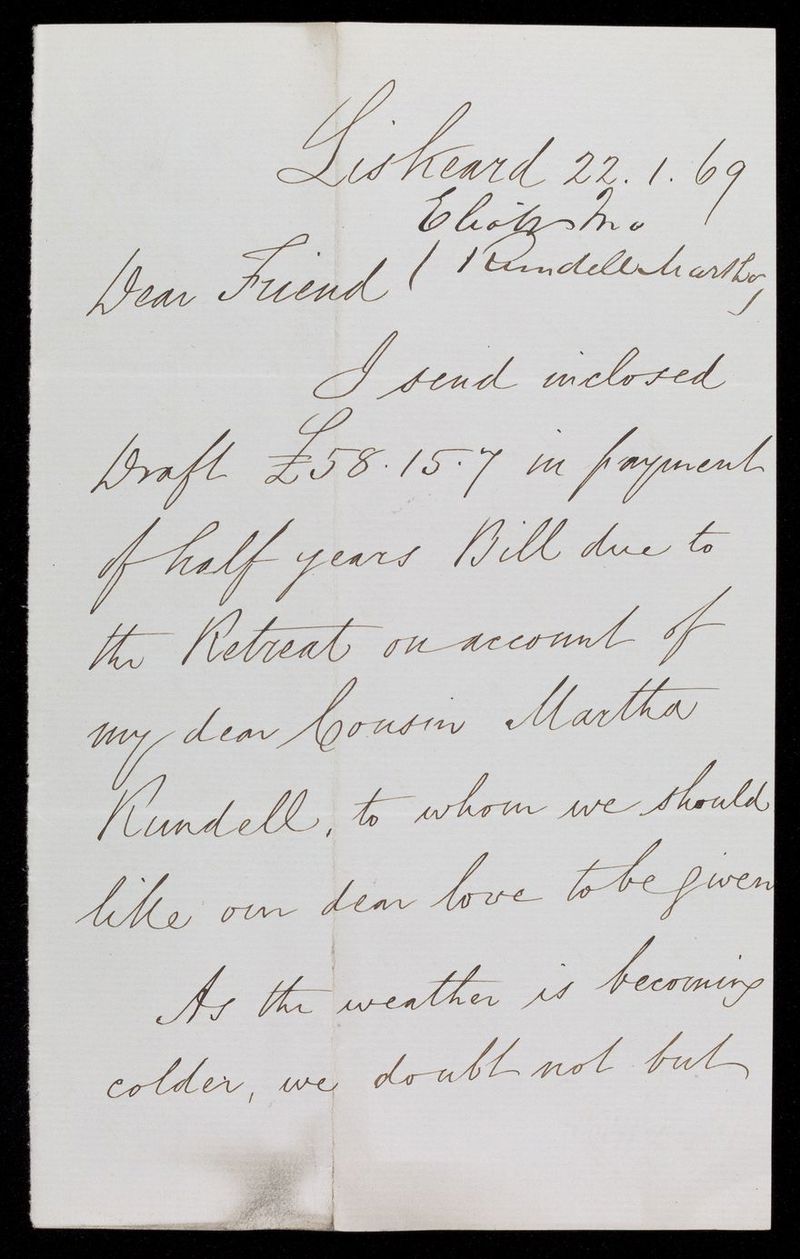 Liskeard 22.1.69
Eliott Jno
( Rundell Martha
Dear Friend
I send inclosed
Draft £58.15.7 in payment
of half years Bill due to
the Retreat on account of
my dear Cousin Martha
Rundell, to whom we should
like our dear love to be given
As the weather is becoming
colder, we doubt not but